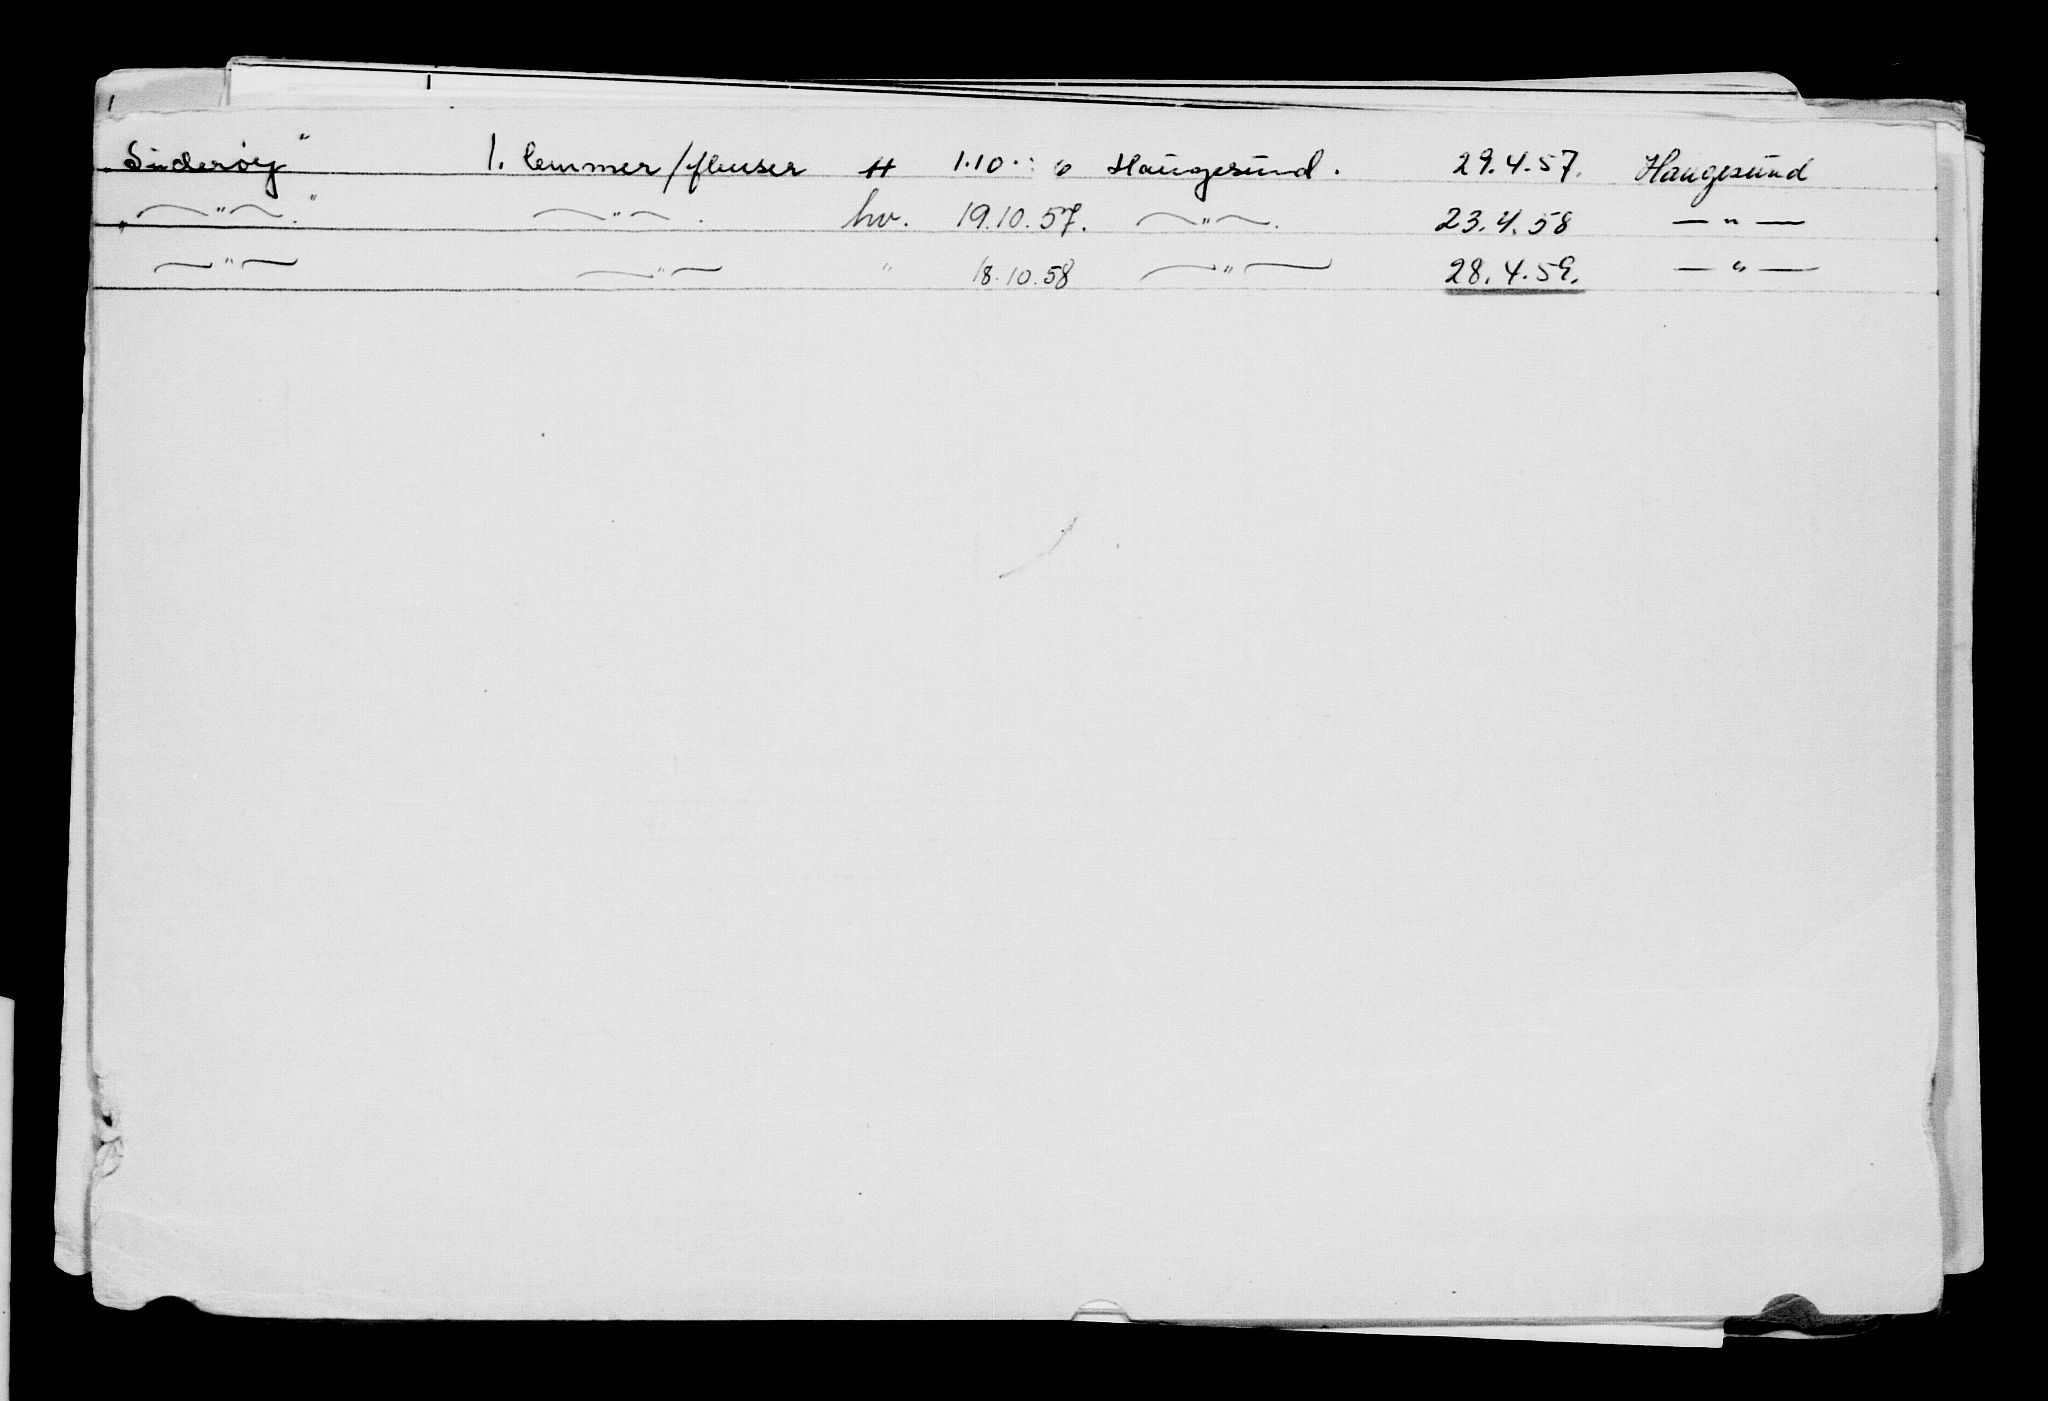 „Suderøy" 1. lemmer/flenser H 1.10. Haugesund. 29.4.57. Haugesund
„—"—." —"—. hv. 19.10.57. —"—. 23.4.58 —"—
—"— —"— " 18.10.58 —"— 28.4.59. —"—